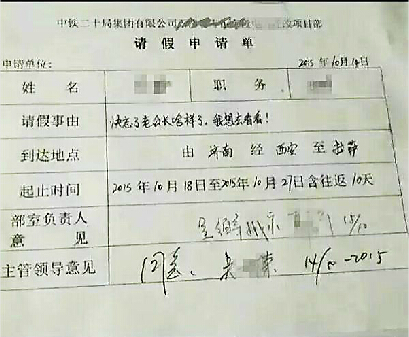 中铁二十局集团有限公司 项目部
请假申请单
申请单位： 2015年10月14日
姓名 职务
请假事由 决忘了老公长啥样了，我想去看看！
到达地点 由 济南 经 西安 至 拉萨
起止时间 2015年10月18日至2015年10月27日含往返10天
部室负责人意见
主管领导意见 同意 14/10-2015